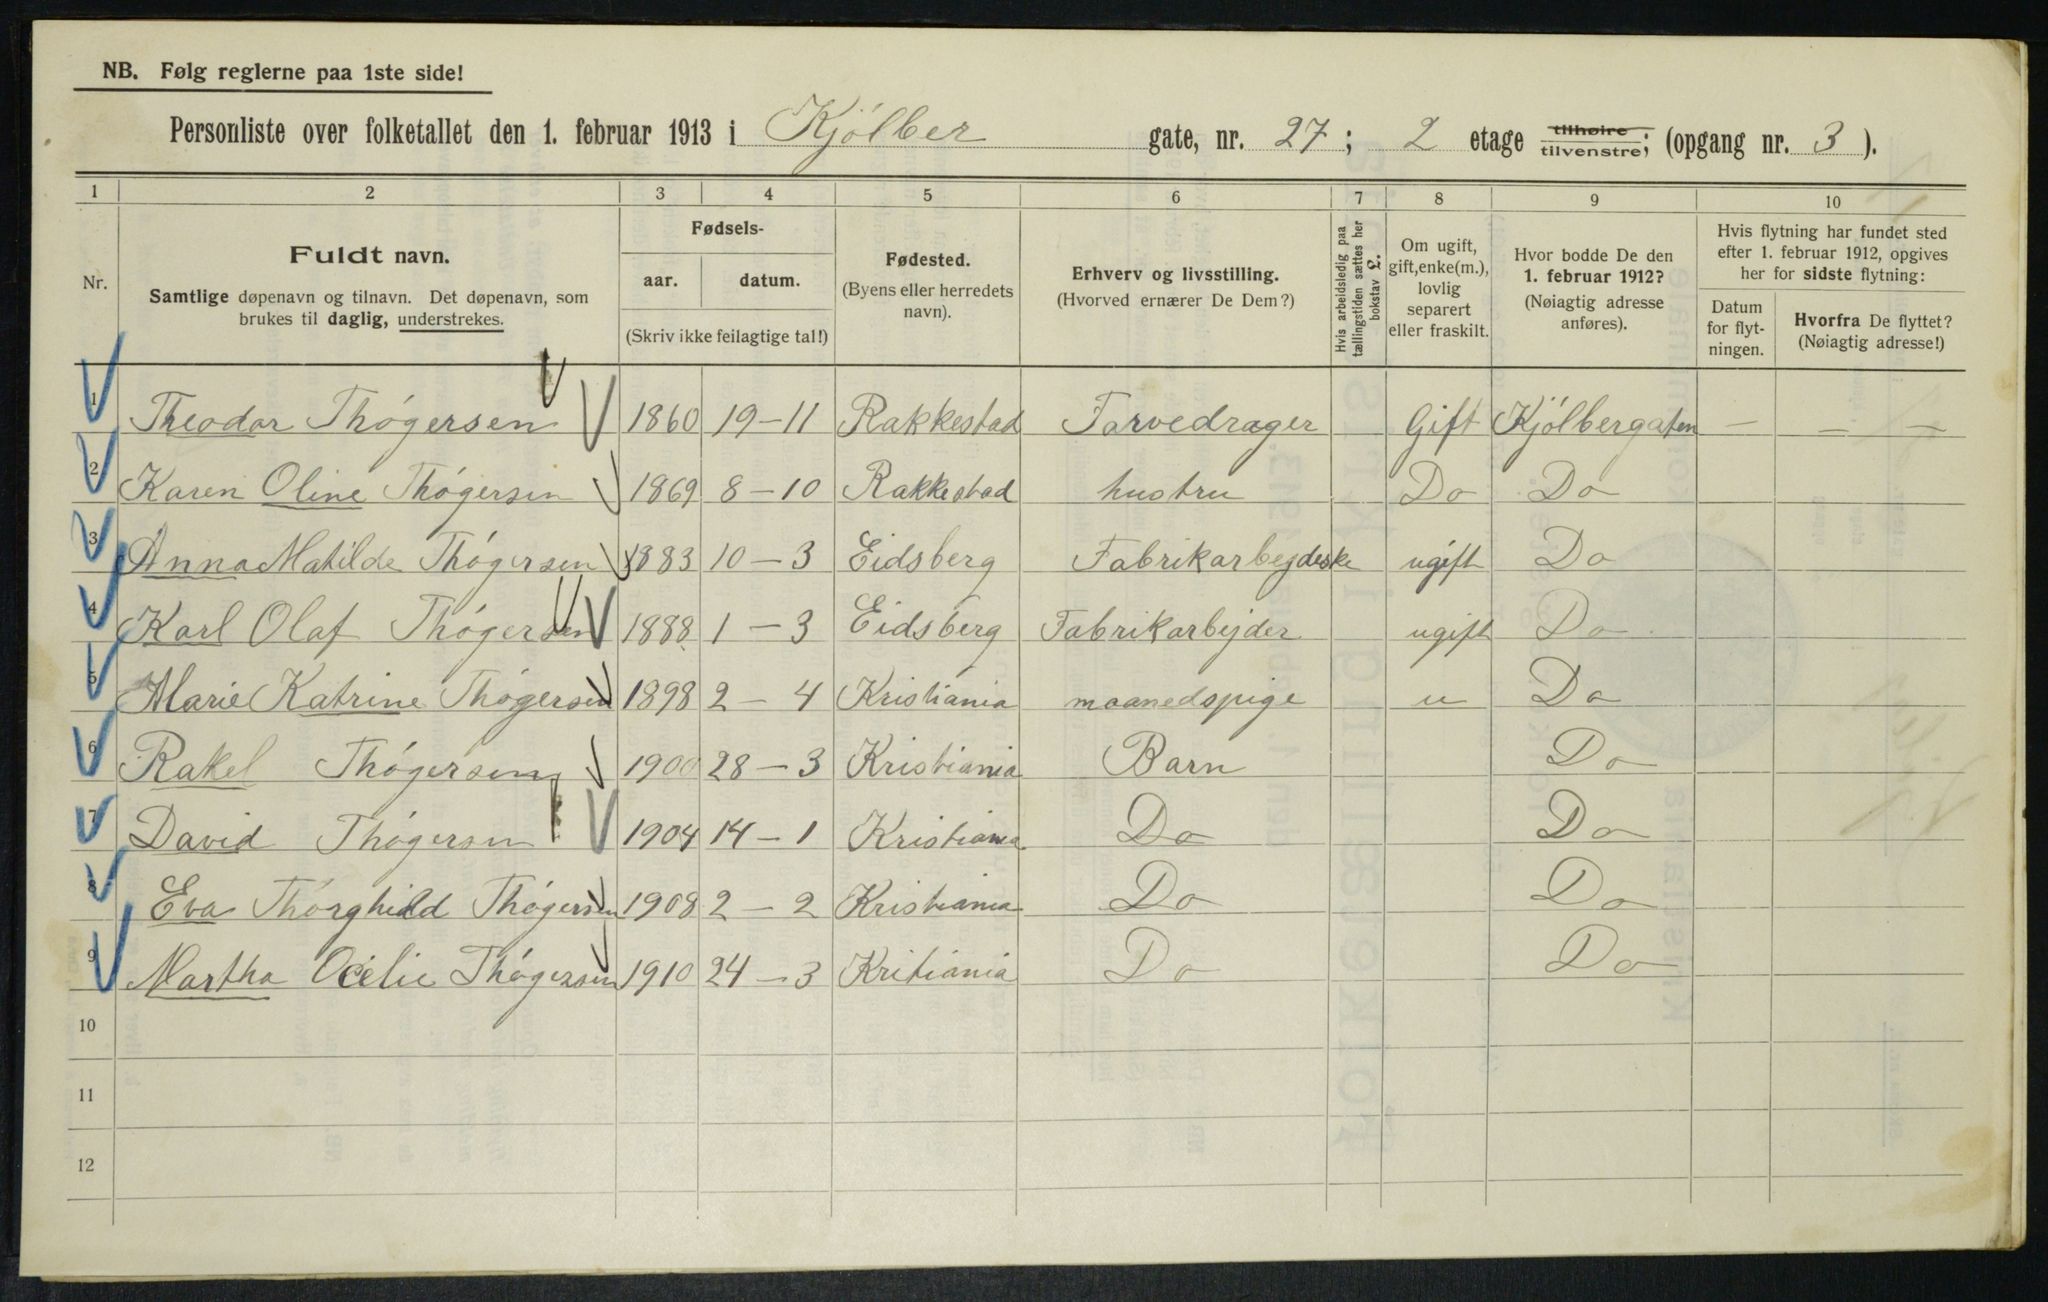 NB. Følg reglerne paa 1ste side!
Personliste over folketallet den 1. februar 1913 i Kjölber gate, nr. 27; 2 etage tilhøire tilvenstre; (opgang nr. 3).
1 2 3 4 5 6 7 8 9 10
Nr.
Fuldt navn.
Samtlige døpenavn og tilnavn. Det døpenavn, som
brukes til daglig, understrekes.
Fødsels-
aar. datum.
(Skriv ikke feilagtige tal!)
Fødested.
(Byens eller herredets
navn).
Erhverv og livsstilling.
(Hvorved ernærer De Dem?)
Hvis arbeidsledig paa
tællingstiden sættes her
bokstav L.
Om ugift,
gift, enke(m.),
lovlig
separert
eller fraskilt.
Hvor bodde De den
1. februar 1912?
(Nøiagtig adresse
anføres).
Hvis flytning har fundet sted
efter 1. februar 1912, opgives
her for sidste flytning:
Datum
for flyt-
ningen.
Hvorfra De flyttet?
(Nøiagtig adresse!)
1 Theodor Thógersen 1860 19-11 Rakkestad Farvedrager Gift Kjólbergaten - - -
2 Karen Oline Thógersen 1869 8-10 Rakkestad hustru Do Do
3 Anna Matilde Thógersen 1883 10-3 Eidsberg Fabrikarbejdeske ugift Do
4 Karl Olaf Thógersen 1888 1-3 Eidsberg Fabrikarbejder ugift Do
5 Marie Katrine Thógersen 1898 2-4 Kristiania maanedspige u Do
6 Rakel Thógersen 1900 28-3 Kristiania Barn Do
7 David Thógersen 1904 14-1 Kristiania Do Do
8 Eva Thórghild Thógersen 1908 2-2 Kristiania Do Do
9 Martha Thógersen 1910 24-3 Kritiania Do Do
10
11
12